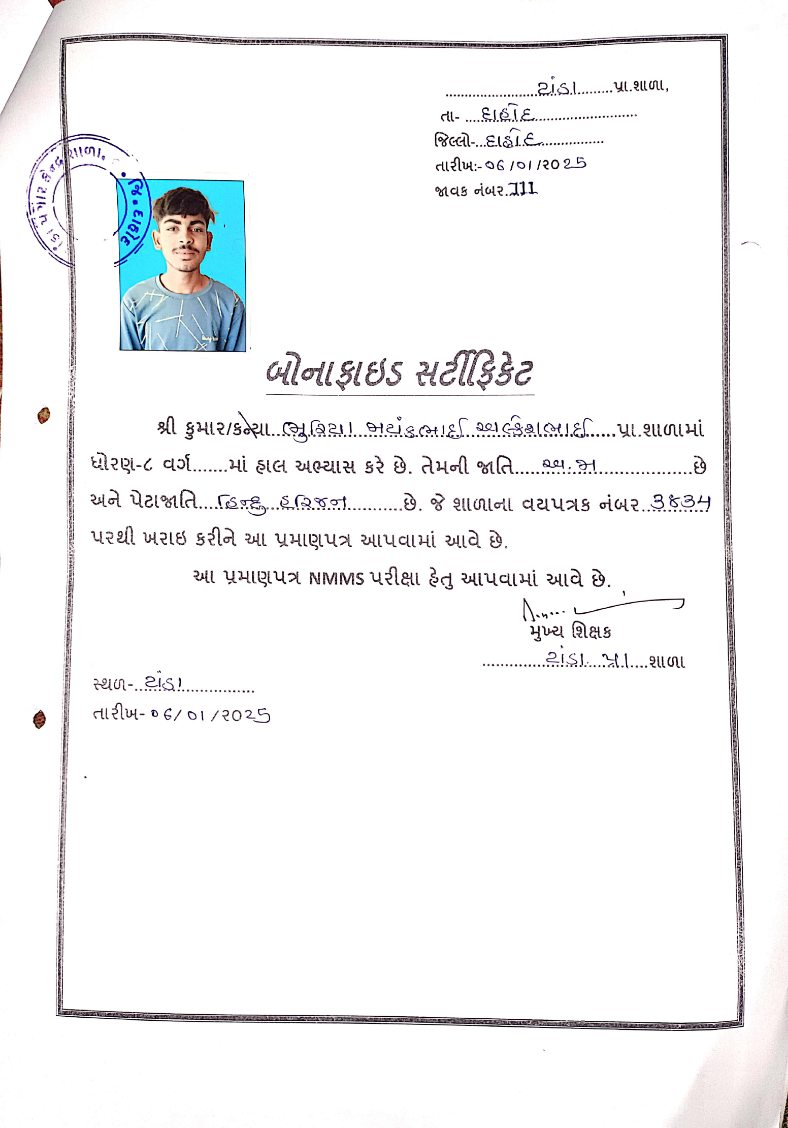 ટાંડા પ્રા.શાળા,
તા- દાહોદ
જિલ્લો- દાહોદ
તારીખ:-૦6/૦1/૨૦25
જાવક નંબર.111
પગાર કેન્દ્ર શાળા. જિ.દાહોદ
બોનાફાઇડ સર્ટીફિકેટ
શ્રી કુમાર/કન્યા ભુરિયા મયંકભાઈ અલ્કેશભાઈ પ્રા.શાળામાં
ધોરણ-૮ વર્ગ.......માં હાલ અભ્યાસ કરે છે. તેમની જાતિ અ.જ છે
અને પેટાજાતિ હિન્દુ હરિજન છે. જે શાળાના વયપત્રક નંબર 3834
પરથી ખરાઇ કરીને આ પ્રમાણપત્ર આપવામાં આવે છે.
આ પ્રમાણપત્ર NMMS પરીક્ષા હેતુ આપવામાં આવે છે.
મુખ્ય શિક્ષક
ટાંડા પ્રા શાળા
સ્થળ- ટાંડા
તારીખ-૦6/૦1/૨૦25